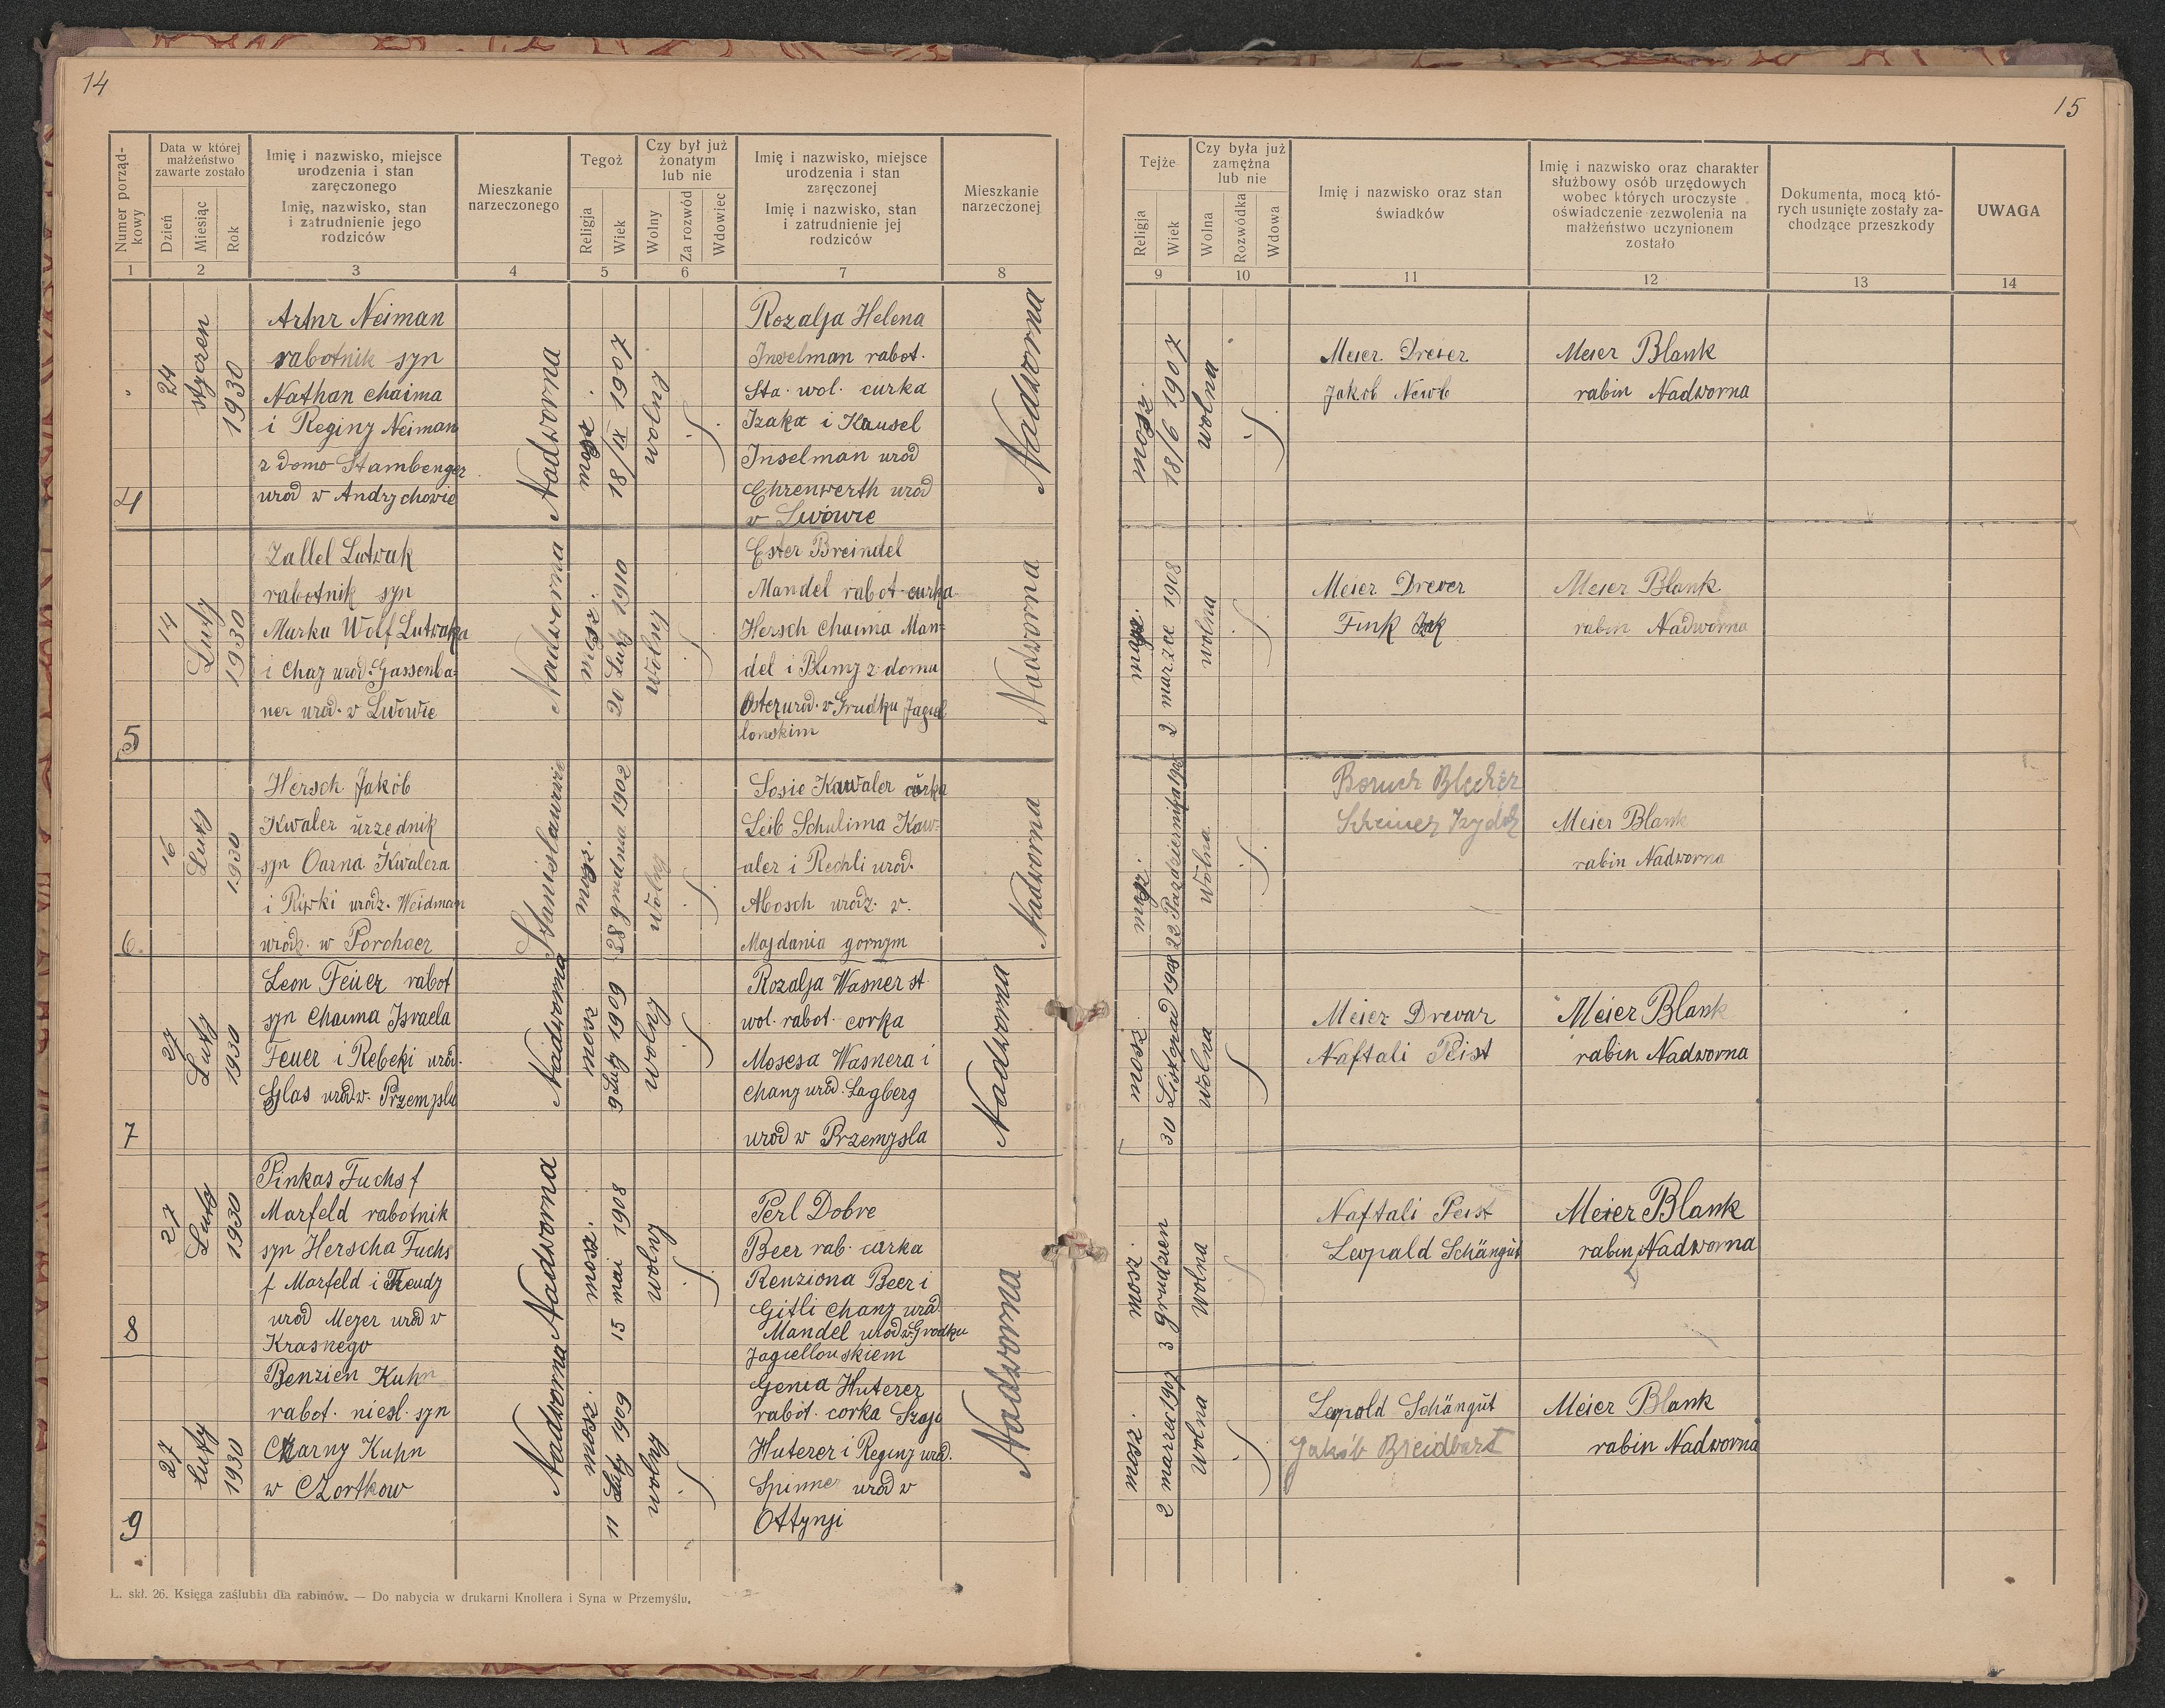 14
Numer porząd-
kowy
Data w której
małżeństwo
zawarte zostało
Dzień
Miesiąc
Rok
Imię i nazwisko, miejsce
urodzenia i stan
zaręczonego
Imię, nazwisko, stan
i zatrudnienie jego
rodziców
Mieszkanie
narzeczonego
Tegoż
Religja
Wiek
Czy był już
żonatym
lub nie
Wolny
Za rozwód
Wdowiec
Imię i nazwisko, miejsce
urodzenia i stan
zaręczonej
Imię i nazwisko, stan
i zatrudnienie jej
rodziców
Mieszkanie
narzeczonej
1
2
3
4
5
6
7
8
4
24
styczen
1930
Artur Neiman
rabotnik syn
Nathan Chaima
i Reginy Neiman
z domo Stambenger
urod w Andrychowie
Nadworna
mosz.
18/IX 1907
wolny
Rozalja Helena
Inselman rabot.
Sta. wol. curka
Izaka i Kausel
Inselman urod
Ehrenwerth urod
w Lwówie
Nadworna
5
14
Luty
1930
Zallel Lutwak
rabotnik syn
Marka Wolf Lutwaka
i Chay urod. Gassenba-
ner urod. w Lwowie
Nadworna
mosz.
20 Luty 1910
wolny
Ester Breindel
Mandel rabot curka
Hersch Chaima Man-
del i Blimy z domu
Oster urod. w Grudku Jagiel
lonskim
Nadworna
6.
16
Luty
1930
Hersch Jakób
Kwaler urzędnik
syn Oarna Kwalera
i Riwki urodz. Weidman
urodz. w Porohaer
Stanislawowie
mosz.
28 grudnia 1902
wolny
Sosie Kawaler curka
Leib Schulima Kaw-
aler i Rechli urod.
Abosch urodz. w.
Majdania gornym
Nadworna
7
27
Luty
1930
Leon Feuer rabot
syn Chaima Israela
Feuer i Rebeki urod.
Glas urod w. Przemyslu
Nadworna
mosz
9 Luty 1909
wolny
Rozalja Wasner st.
wol. rabot. corka
Mosesa Wasnera i
Chany urod. Lagberg
urod w Przemysla
Nadworna
8
27
Luty
1930
Pinkas Fuchs f
Marfeld rabotnik
syn Herscha Fuchs
f Marfeld i Freudy
urod Mejer urod w
Krasnego
Nadworna
mosz.
15 mai 1908
wolny
Perl Dobre
Beer rab. curka
Renziona Beer i
Gitli Chany urod.
Mandel urod w. Grodku
Jagiellouskiem
Nadworna
9
27
Luty
1930
Benzien Kuhn
rabot. niesl. syn
Charny Kuhn
w Czortkow
Nadworna
mosz.
11 Luty 1909
wolny
Genia Huterer
rabot. corka Szaje
Huterer i Reginy urod.
Spinner urod w
Ottynji
L. skł. 26. Księga zaślubin dla rabinów. — Do nabycia w drukarni Knollera i Syna w Przemyślu.
15
Tejże
Religja
Wiek
Czy była już
zamężna
lub nie
Wolna
Rozwódka
Wdowa
Imię i nazwisko oraz stan
świadków
Imię i nazwisko oraz charakter
służbowy osób urzędowych
wobec których uroczyste
oświadczenie zezwolenia na
małżeństwo uczynionem
zostało
Dokumenta, mocą któ-
rych usunięte zostały za-
chodzące przeszkody
UWAGA
9
10
11
12
13
14
mosz.
18/6 1907
wolna
Meier Drewer
Jakob Neub
Meier Blank
rabin Nadworna
mosz.
2 marzec 1908
wolna
Meier Drewer
Fink Izak
Meier Blank
rabin Nadworna
mosz.
22 Pazdziernika
wolna
Boruch Blecher
Scheiner
Meier Blank
rabin Nadworna
mosz.
30 Listopad 1908
wolna
Meier Drewar
Naftali Peist
Meier Blank
rabin Nadworna
mosz.
3 grudzien
wolna
Naftali Peist
Leopald Schängut
Meier Blank
rabin Nadworna
mosz.
2 marzec 1907
wolna
Leopold Schängut
Jakób Breidbart
Meier Blank
rabin Nadworna